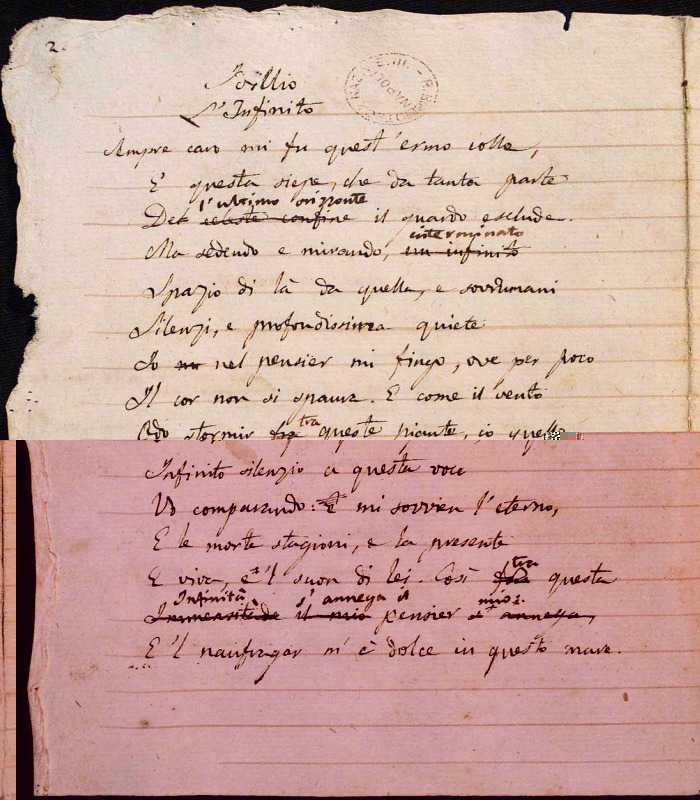 2.
Idillio
L'Infinito
Sempre caro mi fu quest'ermo colle,
E questa siepe, che da tanta parte
l'ultimo orizzonte
Del celeste confine il guardo esclude.
interminato
Ma sedendo e mirando, un infinito
Spazio di là da quella, e sovrumani
Silenzi, e profondissima quiete
Io nel pensier mi fingo, ove per poco
Il cor non si spaura. E come il vento
tra
Odo stormir fra queste piante, io quello
Infinito silenzio a questa voce
Vo comparando: E mi sovvien l'eterno,
E le morte stagioni, e la presente
tra
E viva, e 'l suon di lei. Così fra questa
Infinità s'annega il mio:
Immensitade il mio pensier s'annega,
E 'l naufragar m'è dolce in questo mare.